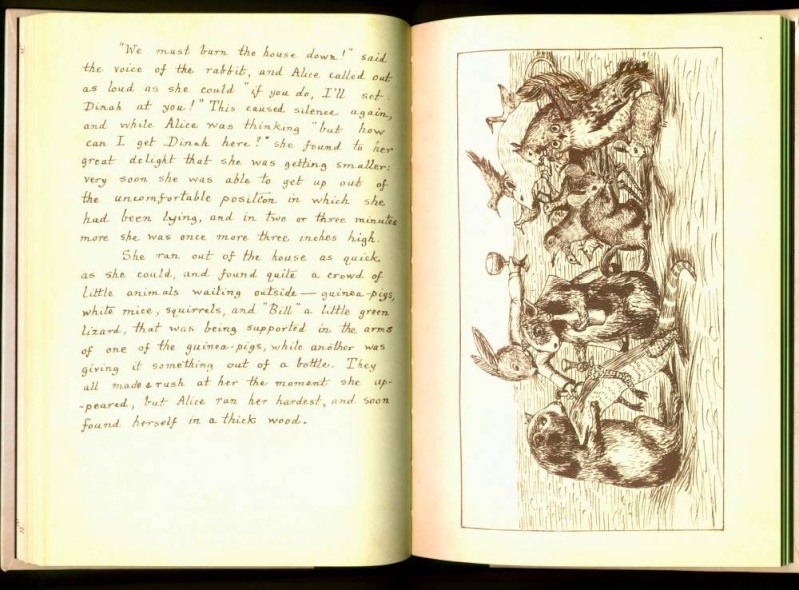 "We must burn the house down!" said
the voice of the rabbit, and Alice called out
as loud as she could "if you do, I'll set
Dinah at you!" This caused silence again,
and while Alice was thinking "but how
can I get Dinah here?" she found to her
great delight that she was getting smaller:
very soon she was able to get up out of
the uncomfortable position in which she
had been lying, and in two or three minutes
more she was once more three inches high.
She ran out of the house as quick
as she could, and found quite a crowd of
little animals waiting outside — guinea-pigs,
white mice, squirrels, and "Bill" a little green
lizard, that was being supported in the arms
of one of the guinea-pigs, while another was
giving it something out of a bottle. They
all made a rush at her the moment she ap-
-peared, but Alice ran her hardest, and soon
found herself in a thick wood.